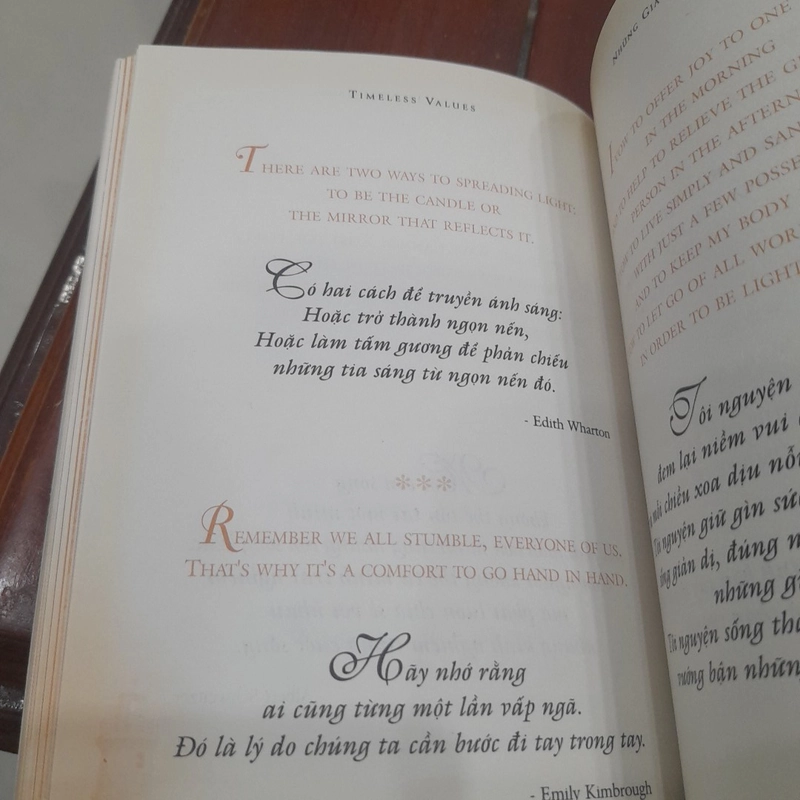 TIMELESS VALUES
THERE ARE TWO WAYS TO SPREADING LIGHT:
TO BE THE CANDLE OR
THE MIRROR THAT REFLECTS IT.
Có hai cách để truyền ánh sáng:
Hoặc trở thành ngọn nến,
Hoặc làm tấm gương để phản chiếu
những tia sáng từ ngọn nến đó.
- Edith Wharton
***
REMEMBER WE ALL STUMBLE, EVERYONE OF US.
THAT'S WHY IT'S A COMFORT TO GO HAND IN HAND.
Hãy nhớ rằng
ai cũng từng một lần vấp ngã.
Đó là lý do chúng ta cần bước đi tay trong tay.
- Emily Kimbrough
NHỮNG GIÁ
VOW TO OFFER JOY TO ONE
IN THE MORNING
TO HELP TO RELIEVE THE
PERSON IN THE
TO LIVE SIMPLY AND
WITH JUST A FEW
AND TO KEEP MY BODY
TO LET GO OF ALL
IN ORDER TO BE LIGHT
Tôi nguyện
đem lại niềm vui
mỗi chiều xoa dịu
Tôi nguyện giữ gìn
giản dị, đúng
những
Tôi nguyện sống
vướng bận những